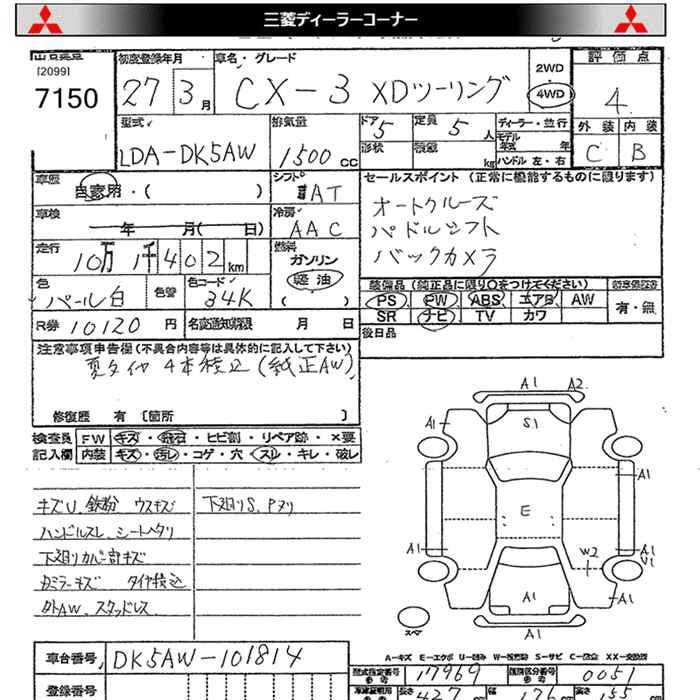 三菱ディーラーコーナー
[2099]
7150
初度登録年月
27 3月
車名・グレード
CX-3 XDツーリング
2WD
4WD
評価点
4
外装 内装
C B
型式
LDA-DK5AW
排気量
1500cc
ドア 5
形状
定員 5人
積載 kg
ディーラー・並行
モデル年式 年
ハンドル 左・右
車歴
自家用・( )
シフト
IAT
車検
年 月( 日)
冷房
AAC
走行
10万1千402km
燃料
ガソリン
軽油
( )
色
パール白
色替
色コード
34K
R券 10120円
名変通知期限 月 日
セールスポイント (正常に機能するものに限ります)
オートクルーズ
パドルシフト
バックカメラ
装備品(純正品に限り○をつけてください)
PS PW ABS エアB AW
SR ナビ TV カワ
有・無
後日品
注意事項申告欄(不具合内容等は具体的に記入して下さい)
夏タイヤ4本積込(純正AW)
修復歴 有 [箇所 ]
検査員 FW キズ・飛石・ヒビ割・リペア跡・×要
記入欄 内装 キズ・汚レ・コゲ・穴・スレ・キレ・破レ
キズU、鉄粉 ウスキズ
ハンドルスレ、シートヘタリ
下廻りカバー割キズ
Rミラーキズ タイヤ積込
外AW、スタッドレス
下廻りS、Pヌリ
A1 A2
S1
A1
A1
E
A1
W2
A1
V1
A1
A1
スペア
A-キズ E-エクボ U-凹み W-補修跡 S-サビ C-腐食 XX-交換済
車台番号 DK5AW-101814
型式指定番号 17969
類別区分番号 0051
登録番号
長さ 427 cm 幅 176 cm 高さ 155 cm